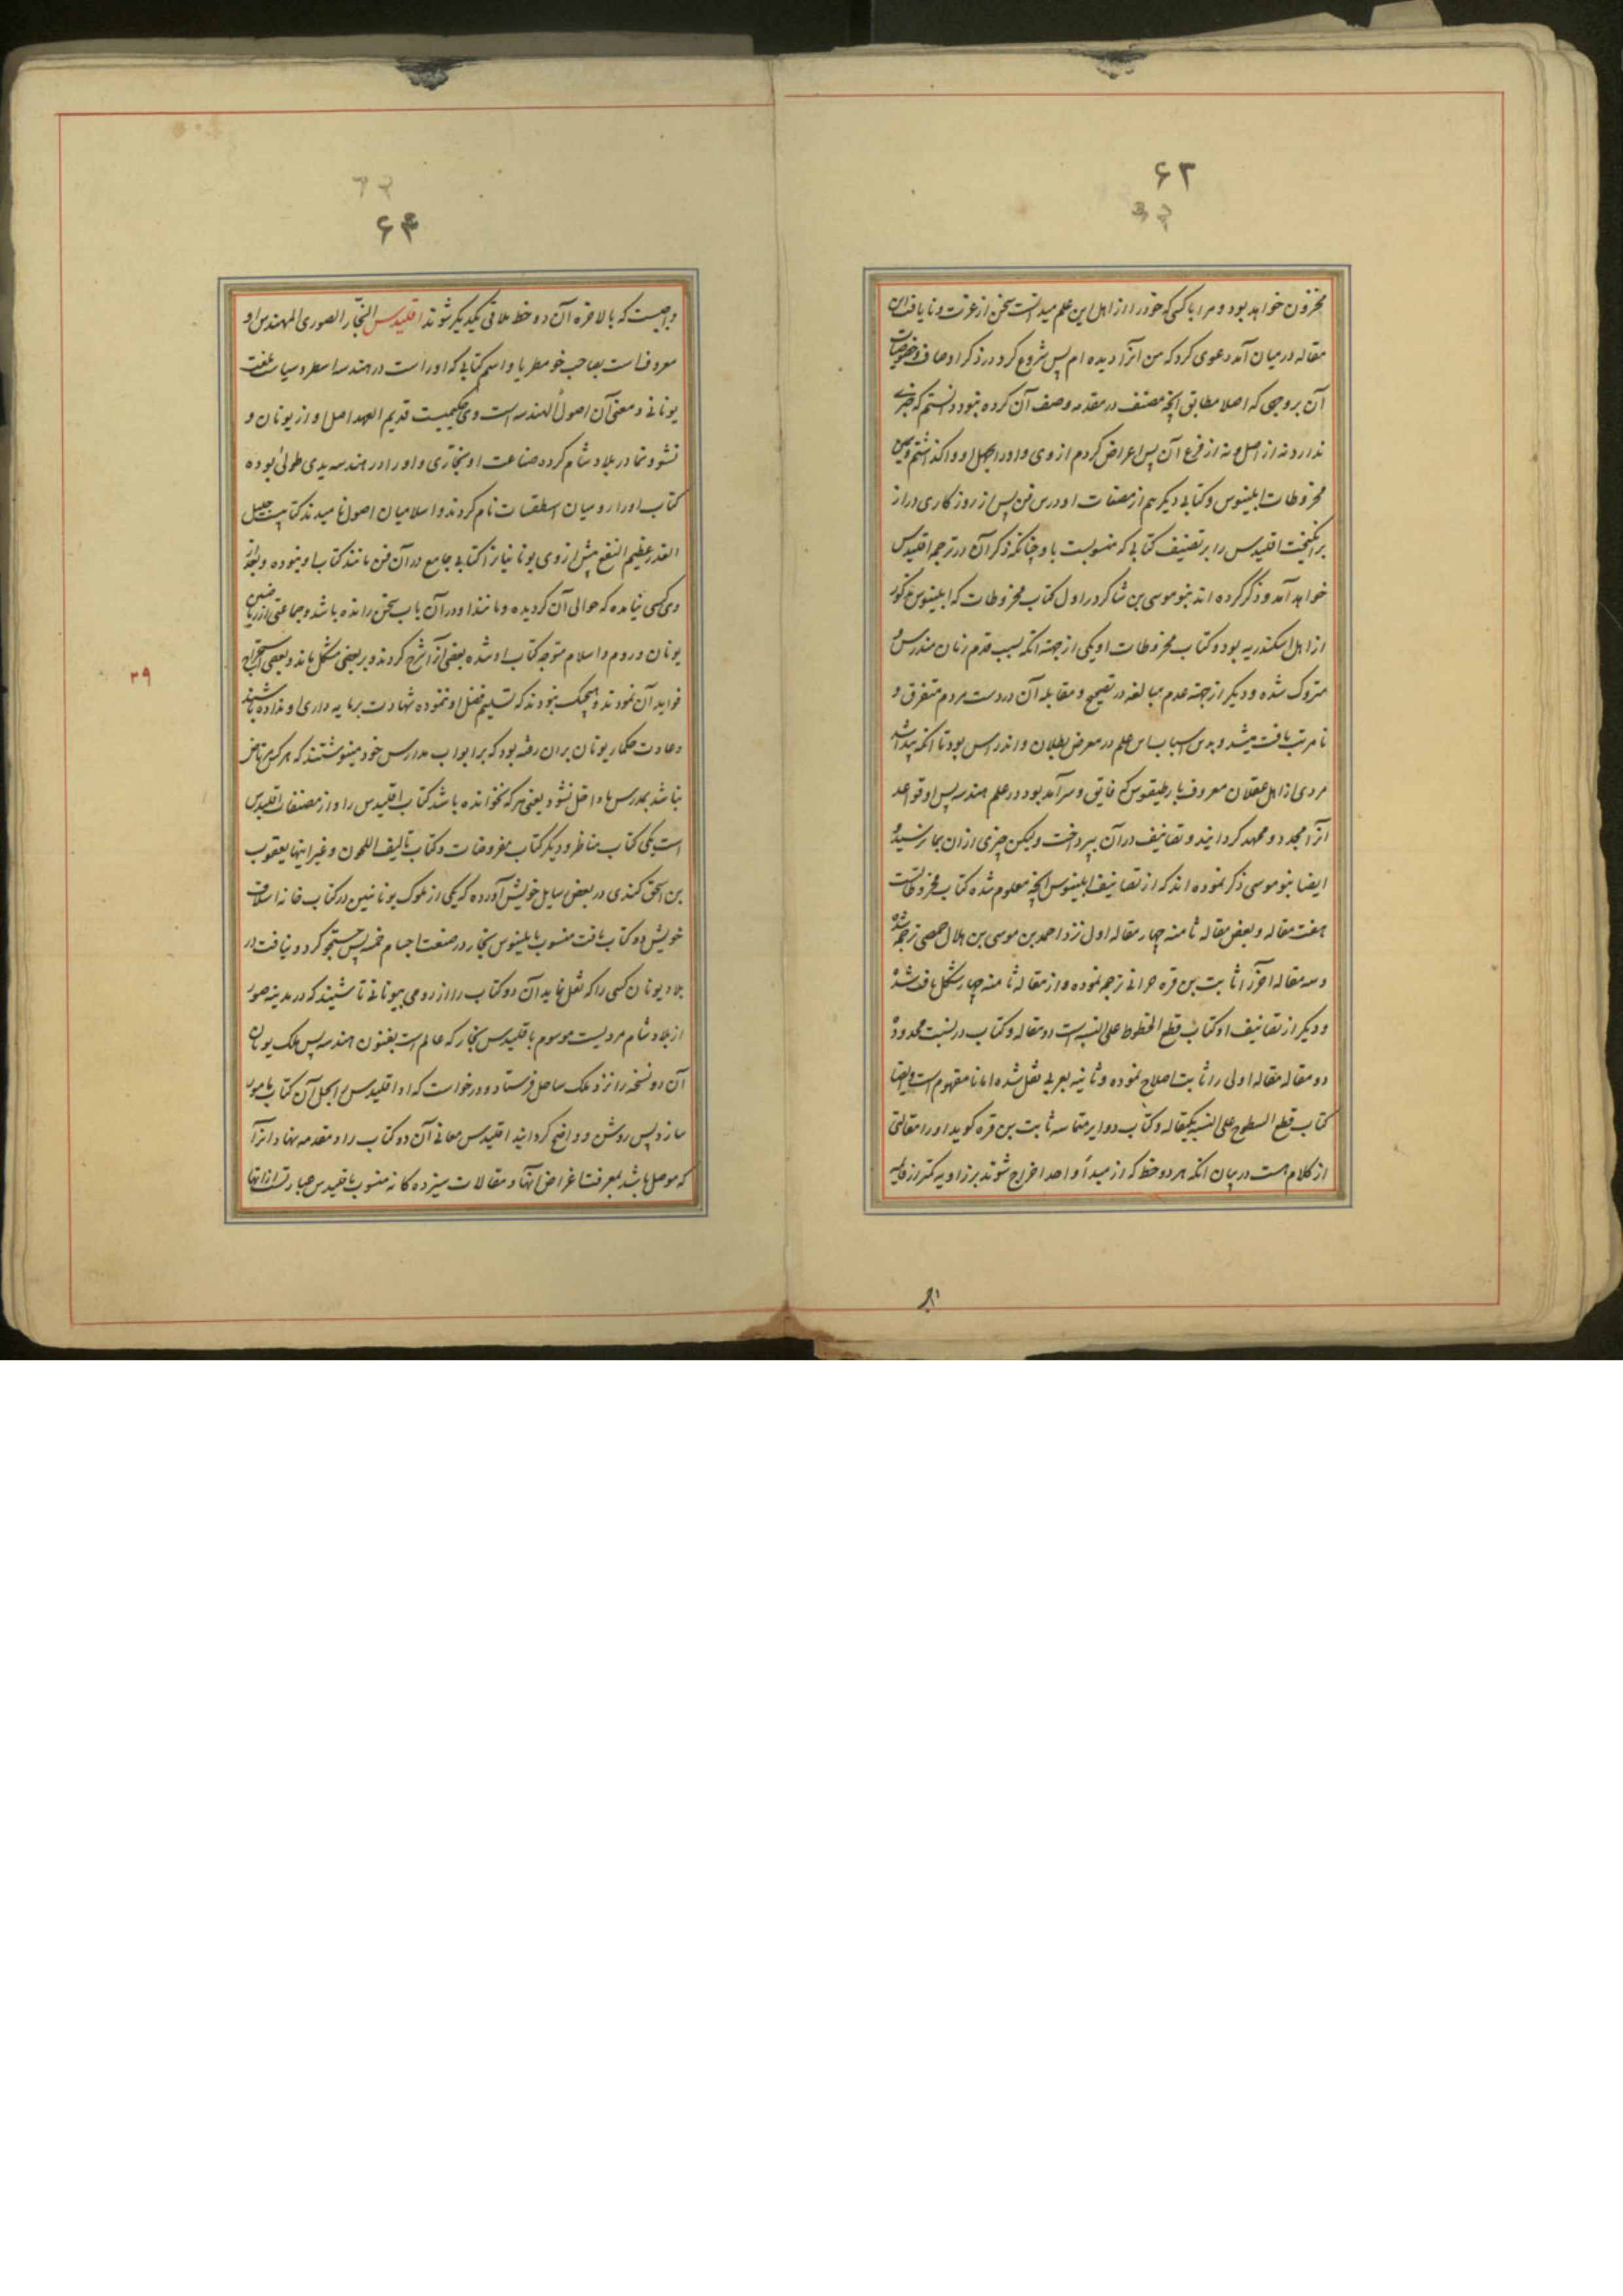 ۶۲
مخزون خواهد بود و مرا با کسی که خود را از اهل این علم میدانست سخن از عزت و نایافت این
مقاله در میان آمد دعوی کرد که من آنرا دیده ام پس شروع کرد در ذکر اوصاف و خصوصیات
آن بر وجهی که اصلا مطابق آنچه مصنف در مقدمه وصف آن کرده نبود دانستم که خبری
ندارد نه از اصل و نه از فرع آن پس اعراض کردم از وی و او را بجهل او وا گذاشتم و همین
مخروطات ابلینوس و کتابی دیگر هم از مصنفات او درس فن پس از روزگاری دراز
برانگیخت اقلیدس را بر تصنیف کتابی که منسوبست باو چنانکه ذکر آن در ترجمه اقلیدس
خواهد آمد و ذکر کرده اند بنو موسی بن شاکر در اول کتاب مخروطات که ابلینوس مذکور
از اهل اسکندریه بود و کتاب مخروطات او یکی از جهته آنکه بسبب قدم زمان مندرس و
متروک شده و دیگر از جهته عدم مبالغه در تصحیح و مقابله آن در دست مردم متفرق و
نامرتب یافت میشد و بدین اسباب این علم در معرض بطلان و اندراس بود تا آنکه پیدا شد
مردی از اهل عقلان معروف باوطیقوس که فایق و سرآمد بود در علم هندسه پس او قواعد
آنرا مجدد و ممهد گردانید و تصانیف در آن بپرداخت ولیکن چیزی از ان بما رسید و
ایضا بنو موسی ذکر نموده اند که از تصانیف ابلینوس آنچه معلوم شده کتاب مخروطاتست
هفت مقاله و بعض مقاله ثامنه چهار مقاله اول نزد احمد بن موسی بن هلال حمصی ترجمه شده
و سه مقاله آخر را ثابت بن قره حرانی ترجمه نموده و از مقاله ثامنه چهار شکل یافت شده
و دیگر از تصانیف او کتاب قطع الخطوط علی النسبه است دو مقاله و کتاب در نسبت محدوده
دو مقاله مقاله اولی را ثابت اصلاح نموده و ثانیه بعربی نقل شده اما نامفهوم است و ایضا
کتاب قطع السطوح علی النسبه یکمقاله و کتاب دوایر متماسه ثابت بن قره گوید او را مقالتی
از کلام هست در بیان آنکه هر دو خط که از مبدأ واحد اخراج شوند بر زاویه کمتر از قایمه
۶۴
واجبست که بالاخره آن دو خط ملاقی یکدیگر شوند اقلیدس النجّار الصوری المهندس او
معروفست بصاحب جومطریا و اسم کتابی که او راست در هندسه اسطروسیاست بلغت
یونانی و معنی آن اصول الهندسه است وی حکیمیست قدیم العهد اصل او از یونان و
نشو و نما در بلاد شام کرده صناعت او نجاری و او را در هندسه یدی طولی بوده
کتاب او را رومیان اسطقسات نام کردند و اسلامیان اصول نامیدند کتابیست جلیل
القدر عظیم النفع پیش از وی یونانیان را کتابی جامع در آن فن مانند کتاب او نبوده و بعد از
وی کسی نیامده که حوالی آن گردیده و مانند او در آن باب سخن رانده باشد و جماعتی از ریاضیین
یونان و روم و اسلام متوجه کتاب او شده بعضی آنرا شرح کردند و بر بعضی مشکل ماند و بعضی استخراج
فواید آن نمودند و هیچیک نبودند که تسلیم فضل او ننموده شهادت بر مایه داری او نداده باشند
و عادت حکماء یونان بران رفته بود که بر ابواب مدارس خود مینوشتند که هر کس مرتاض
نباشد بمدرس ما داخل نشود یعنی هر که نخوانده باشد کتاب اقلیدس را و از مصنفات اقلیدس
است یکی کتاب مناظر و دیگر کتاب مفروضات و کتاب تالیف اللحون و غیر اینها یعقوب
بن اسحق کندی در بعض رسایل خویش آورده که یکی از ملوک یونانیین در کتاب خانه اسلاف
خویش دو کتاب یافت منسوب بابلینوس نجار در صنعت اجسام خمسه پس جستجو کرد و نیافت در
بلاد یونان کسی را که نقل نماید آن دو کتاب را از رومی بیونانی تا شنیدند که در مدینه صور
از بلاد شام مردیست موسوم باقلیدس نجار که عالم است بفنون هندسه پس ملک یونان
آن دو نسخه را نزد ملک ساحل فرستاد و درخواست که او اقلیدس را بحل آن کتاب مامور
سازد پس روشن و واضح گردانید اقلیدس معانی آن دو کتاب را و مقدمه نهاد انرا
که موصل باشد بمعرفت اغراض آنها و مقالات سیزده گانه منسوب باقلیدس عبارتست از آنها
۳۹